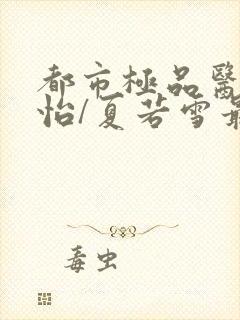 都市極品醫
怡/夏若雪最
毒虫